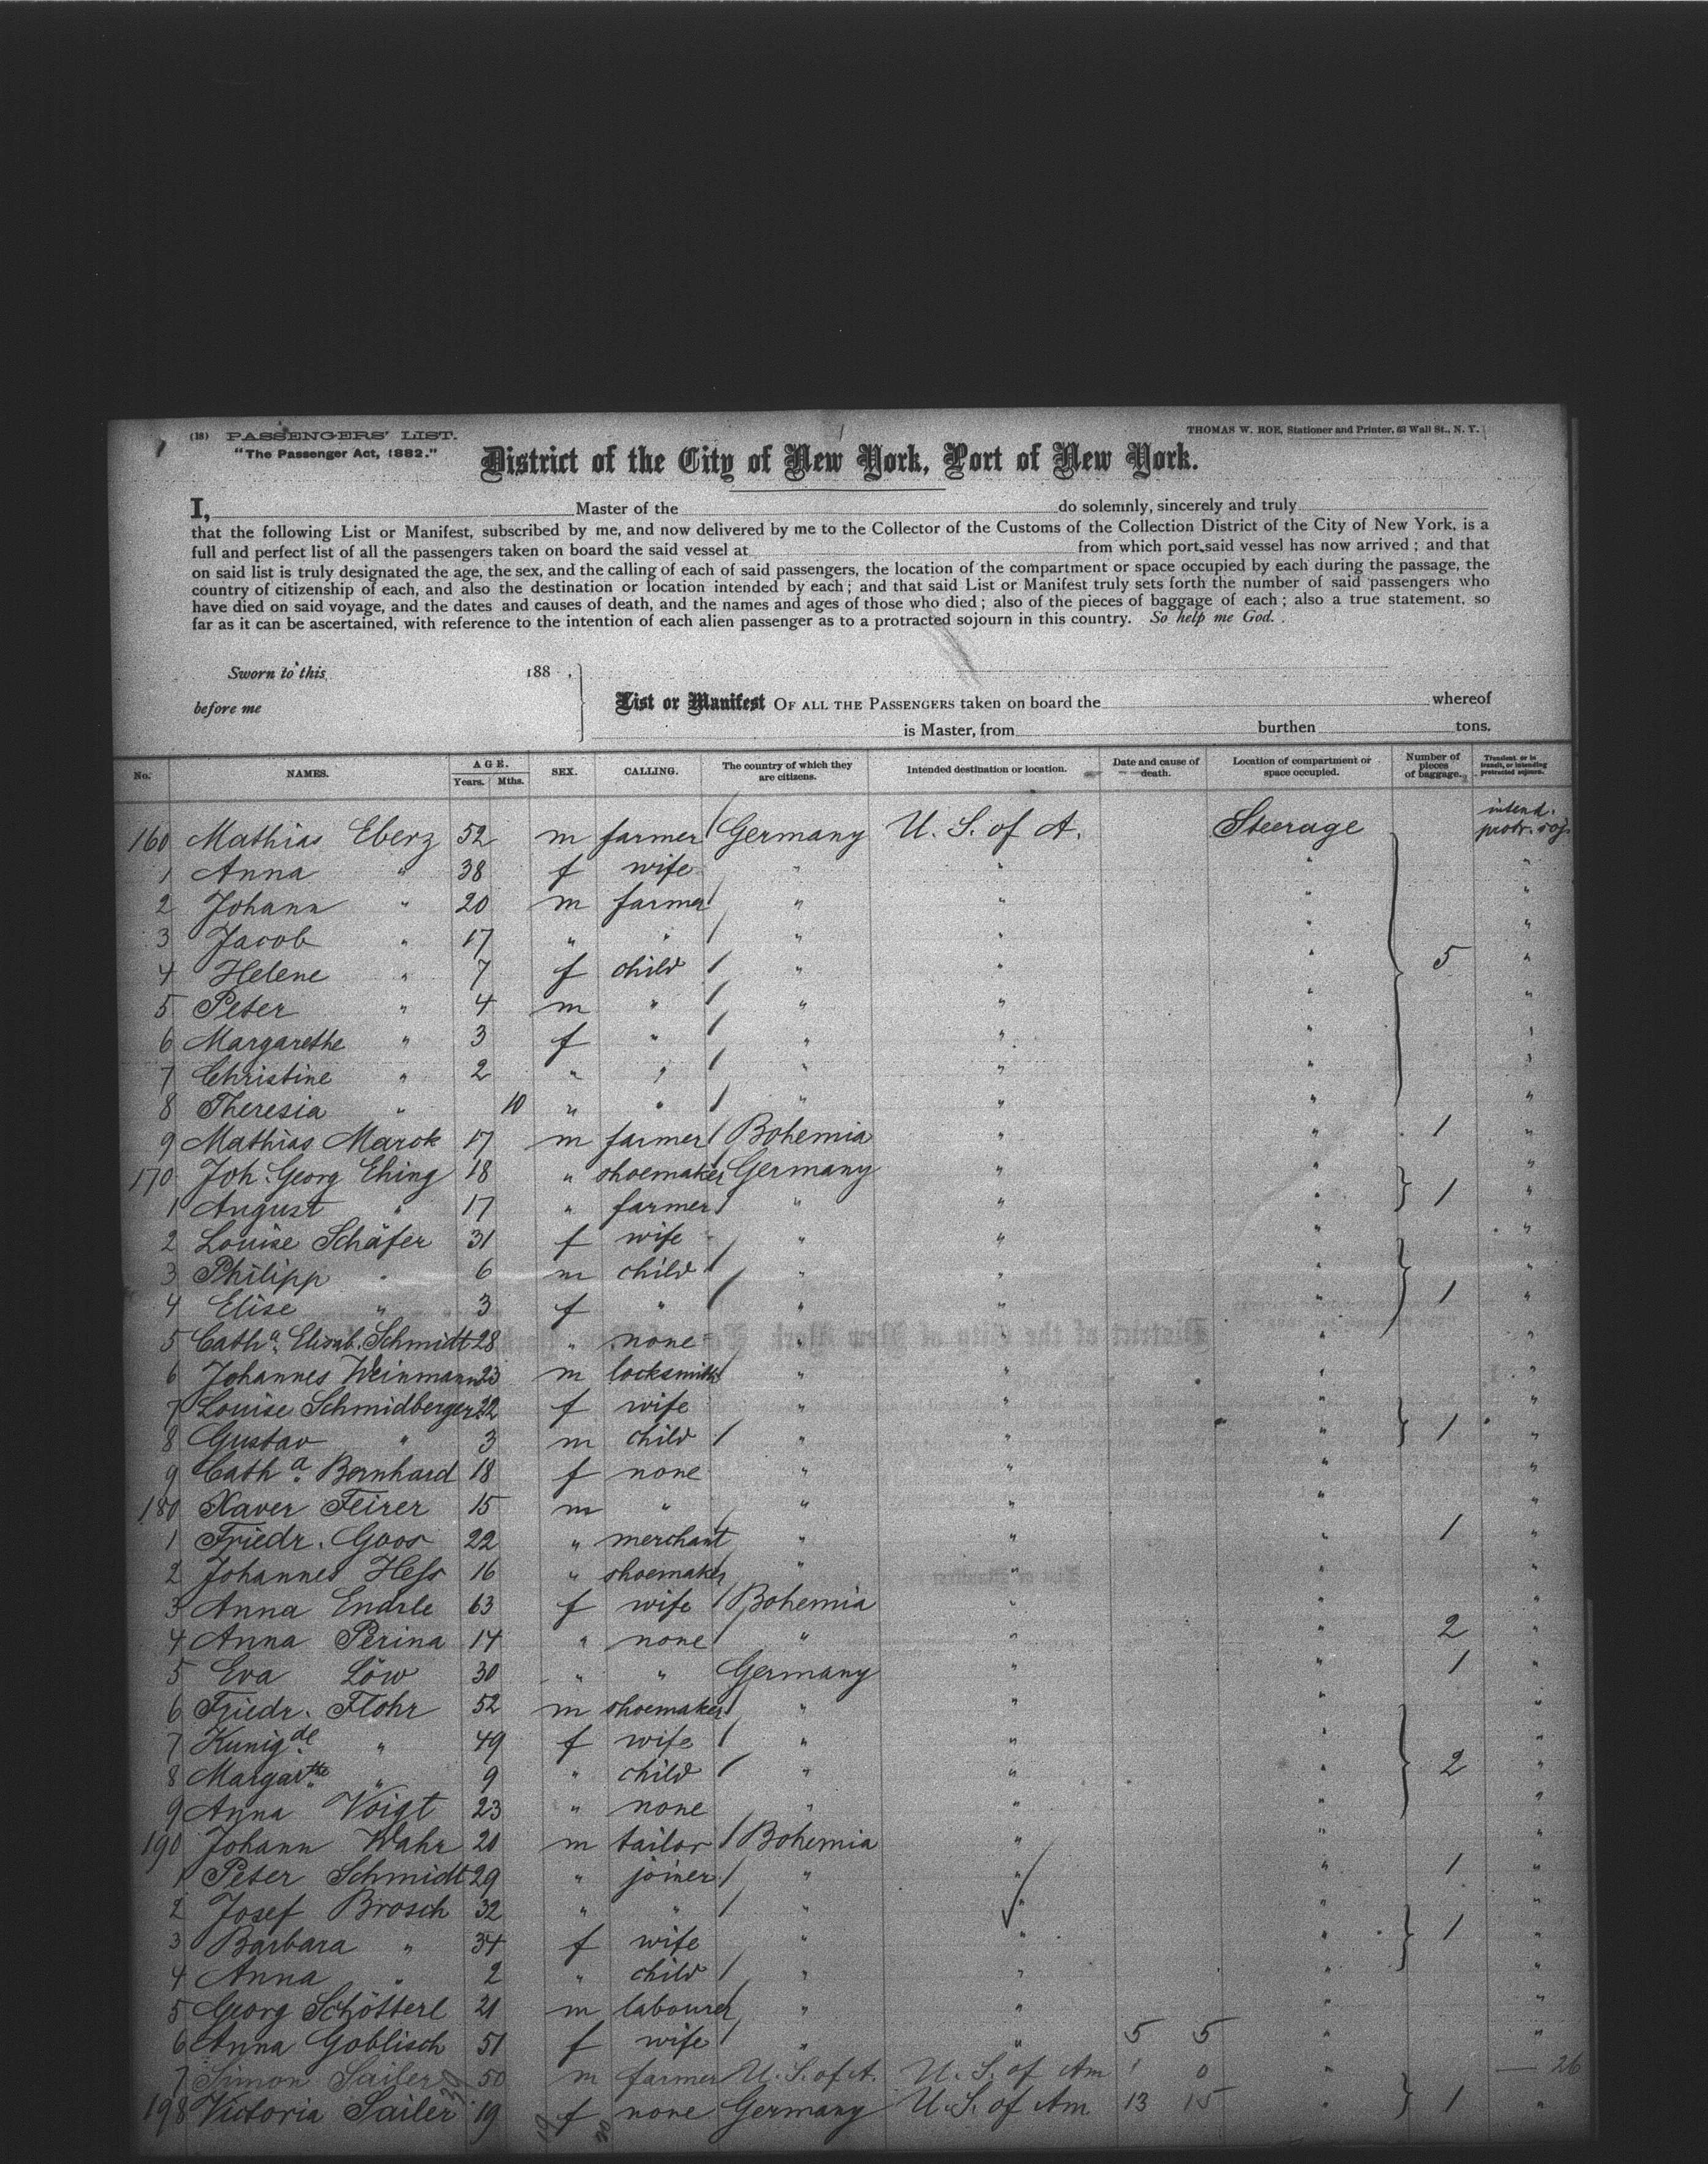 (18) PASSENGERS' LIST.
THOMAS W. ROE, Stationer and Printer, 63 Wall St., N. Y.
"The Passenger Act, 1882."
District of the City of New York, Port of New York.
I, Master of the do solemnly, sincerely and truly
that the following List or Manifest, subscribed by me, and now delivered by me to the Collector of the Customs of the Collection District of the City of New York, is a
full and perfect list of all the passengers taken on board the said vessel at from which port said vessel has now arrived ; and that
on said list is truly designated the age, the sex, and the calling of each of said passengers, the location of the compartment or space occupied by each during the passage, the
country of citizenship of each, and also the destination or location intended by each ; and that said List or Manifest truly sets forth the number of said passengers who
have died on said voyage, and the dates and causes of death, and the names and ages of those who died ; also of the pieces of baggage of each ; also a true statement, so
far as it can be ascertained, with reference to the intention of each alien passenger as to a protracted sojourn in this country. So help me God.
Sworn to this 188 ,
before me
List or Manifest OF ALL THE PASSENGERS taken on board the whereof
is Master, from burthen tons.
No. NAMES. AGE. Years. Mths. SEX. CALLING. The country of which they are citizens. Intended destination or location. Date and cause of death. Location of compartment or space occupied. Number of pieces of baggage. Transient or in transit, or intending protracted sojourn.
160 Mathias Eberz 52 m farmer Germany U. S. of A. Steerage intend. protr. soj.
1 Anna " 38 f wife " " " "
2 Johann " 20 m farmer " " " "
3 Jacob " 17 " " " " " "
4 Helene " 7 f child " " " 5 "
5 Peter " 4 m " " " " "
6 Margarethe " 3 f " " " " "
7 Christine " 2 " " " " " "
8 Theresia " 10 " " " " " "
9 Mathias Marok 17 m farmer Bohemia " " 1 "
170 Joh. Georg Ehing 18 " shoemaker Germany " " "
1 August " 17 " farmer " " " 1 "
2 Louise Schäfer 31 f wife " " " "
3 Philipp " 6 m child " " " "
4 Elise " 3 f " " " " 1 "
5 Catha. Elisab. Schmidt 28 " none " " " "
6 Johannes Weinmann 23 m locksmith " " " "
7 Louise Schmidberger 22 f wife " " " "
8 Gustav " 3 m child " " " 1 "
9 Catha. Bernhard 18 f none " " " "
180 Xaver Feirer 15 m " " " " "
1 Friedr. Goos 22 " merchant " " " 1 "
2 Johannes Hess 16 " shoemaker " " " "
3 Anna Endrle 63 f wife Bohemia " " "
4 Anna Perina 14 " none " " " 2 "
5 Eva Löw 30 " " Germany " " 1 "
6 Friedr. Flohr 52 m shoemaker " " " "
7 Kunigde " 49 f wife " " " "
8 Margarthe " 9 " child " " " 2 "
9 Anna Voigt 23 " none " " " "
190 Johann Wahr 20 m tailor Bohemia " " "
1 Peter Schmidt 29 " joiner " " " 1 "
2 Josef Brosch 32 " " " " " "
3 Barbara " 34 f wife " " " 1 "
4 Anna " 2 " child " " " "
5 Georg Schötterl 21 m labourer " " " "
6 Anna Goblisch 51 f wife " " 5 5 " "
7 Simon Sailer 50 m farmer U. S. of A. U. S. of Am 1 0 " — 26
198 Victoria Sailer 19 f none Germany U. S. of Am 13 15 " 1 "